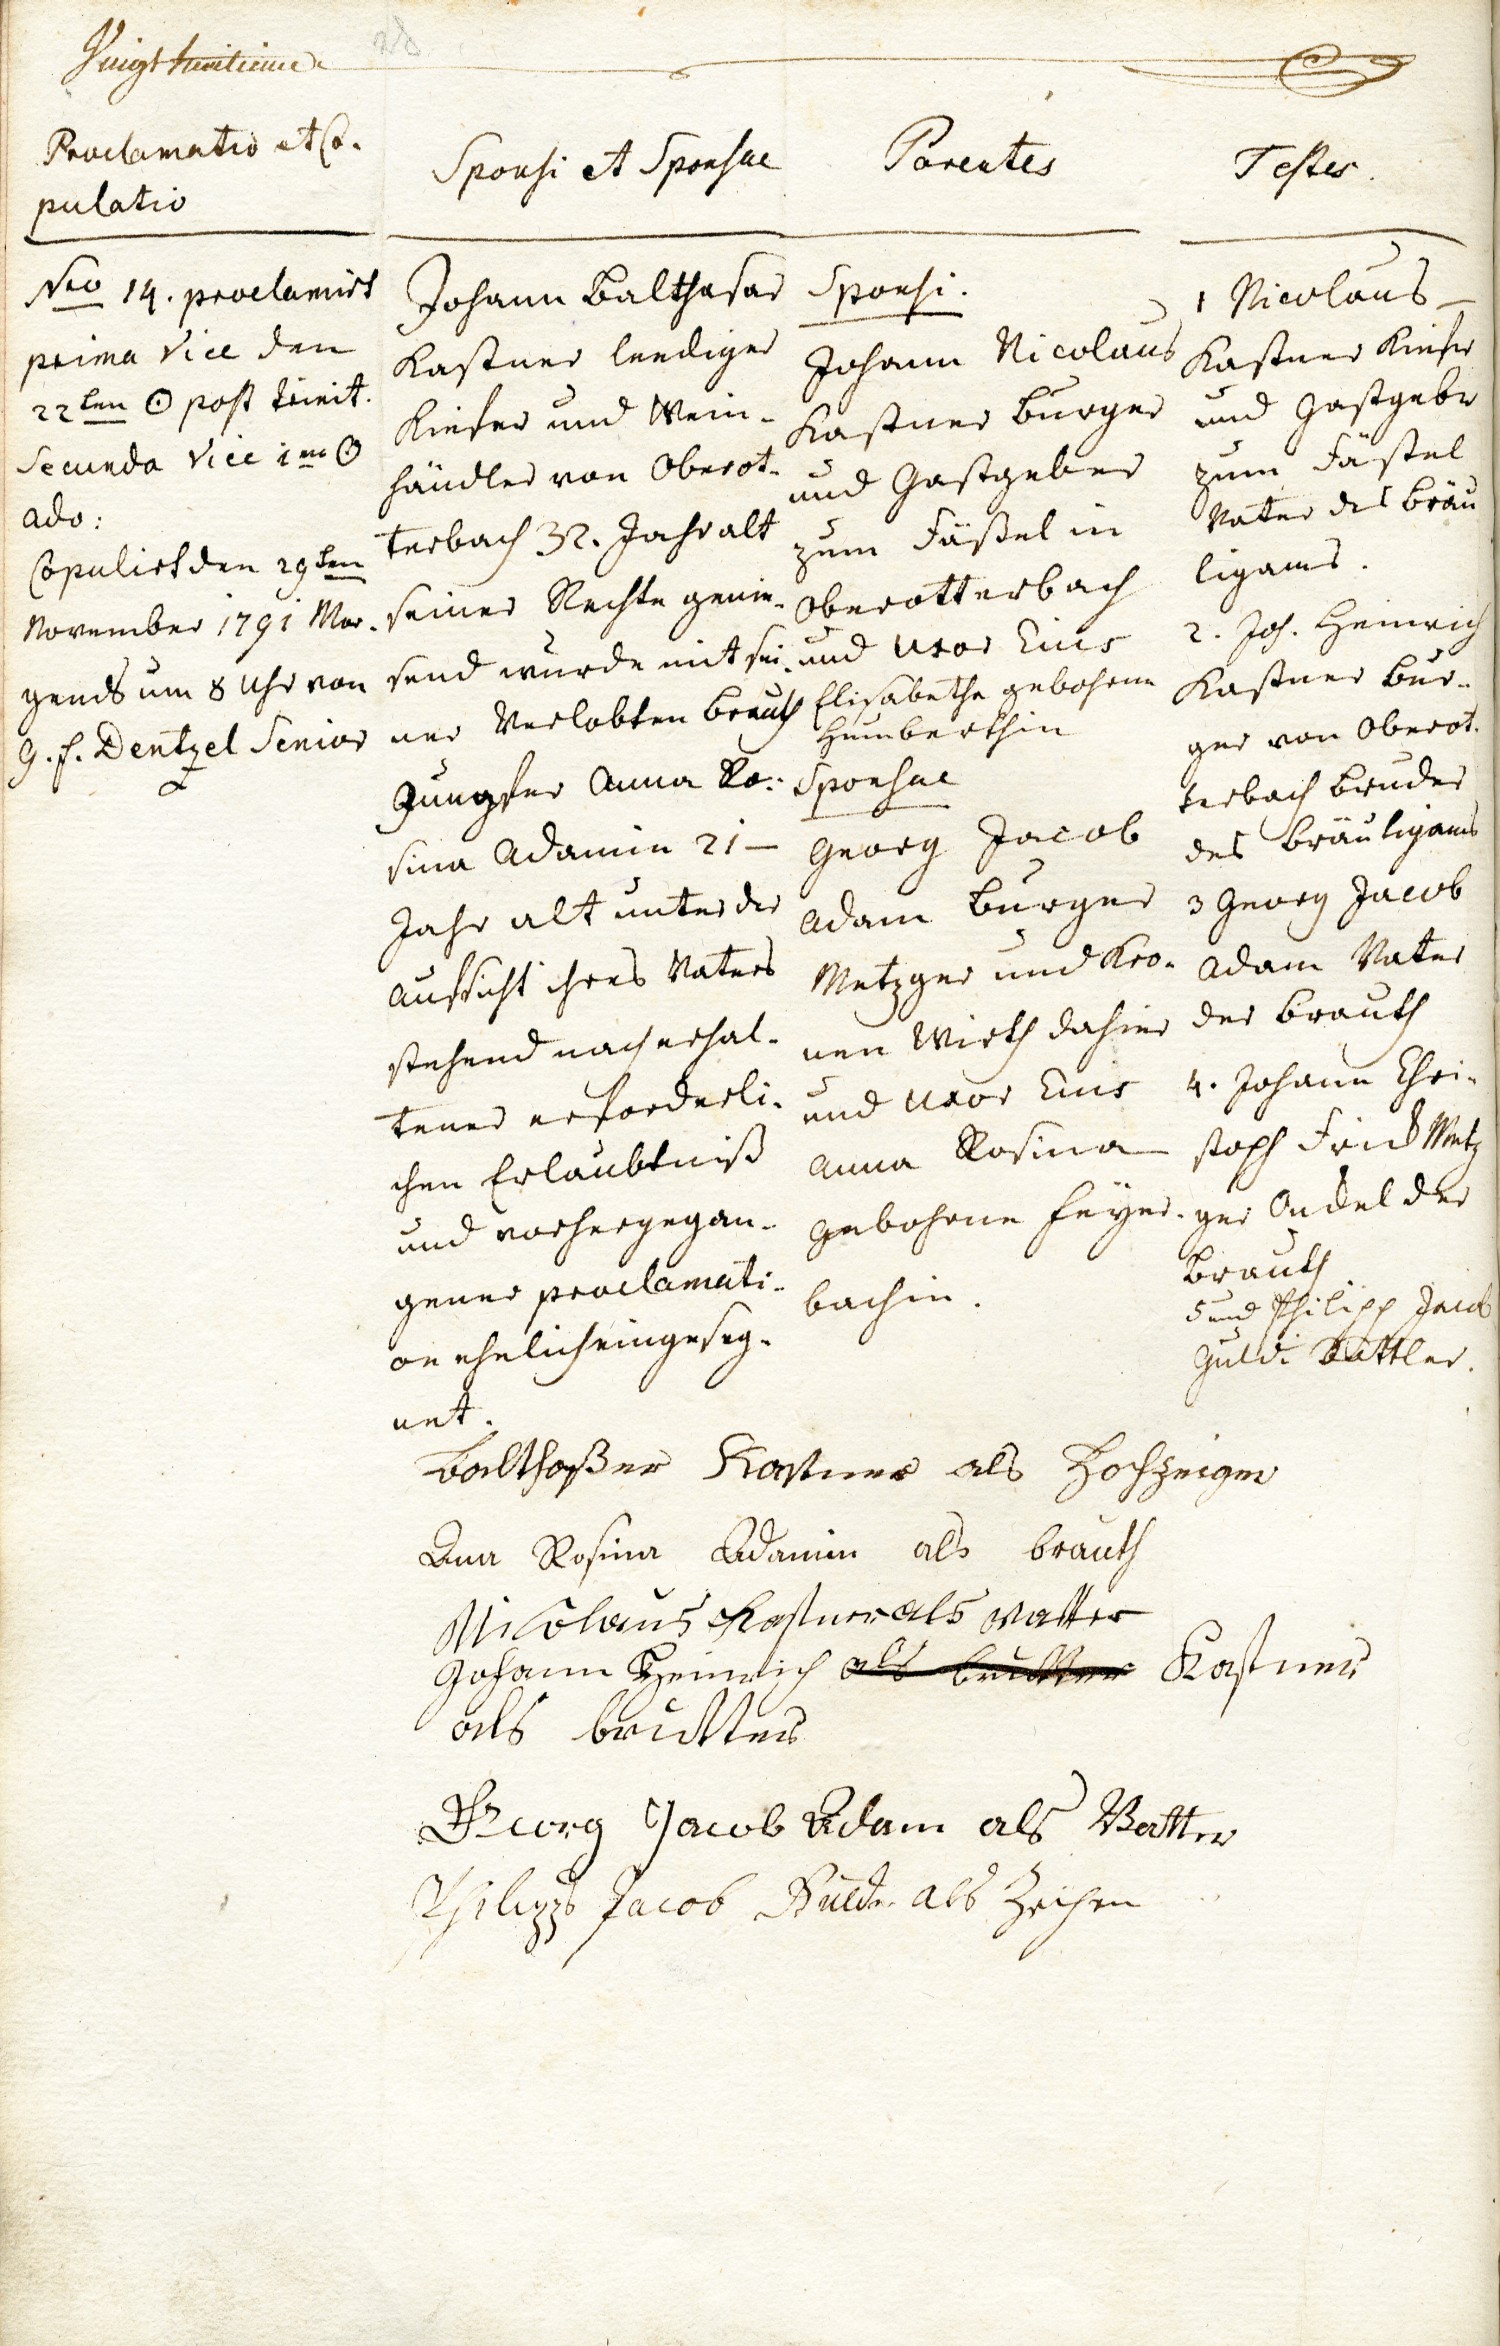 Vingt huitieme
28
Proclamatio et Co-
pulatio
Nro 14. proclamirt
prima Vice den
22ten ☉ post trinit.
Secunda Vice 1mo ☉
adv:
Copulirt den 29ten
November 1791 Mor-
gends um 8 Uhr von
G. F. Dentzel Senior
Sponsi et Sponsae
Johann Balthasar
Kastner leediger
Kiefer und Wein-
händler von Oberot-
terbach 32. Jahr alt
seiner Rechte genie-
send wurde mit sei-
ner Verlobten Brauth
Jungfer Anna Ro-
sina Adamin 21 –
Jahr alt unter der
Aufsicht ihres Vaters
stehend nach erhal-
tener erforderli-
chen Erlaubtniß
und vorhergegan-
gener proclamati-
on ehelich eingeseg-
net.
Parentes
Sponsi.
Johann Nicolaus
Kastner Burger
und Gastgeber
zum Fäßel in
Oberotterbach
und Uxor Eius
Elisabetha gebohrne
Humberthin
Sponsae
Georg Jacob
Adam Burger
Metzger und Kro-
nen Wirth dahier
und Uxor Eius
Anna Rosina
gebohrne Feyer-
bachin.
Testes.
1 Nicolaus –
Kastner Kiefer
und Gastgeber
zum Fäßtel
Vater des Bräu
ligams.
2. Joh. Heinrich
Kastner Bur-
ger von Oberot-
terbach Bruder
des Bräuligams
3 Georg Jacob
Adam Vater
der Brauth
4. Johann Chri-
stoph Frid Metz
ger Ondel der
Brauth
5 und Philipp Jacob
Guldi Sattler.
Balthaßer Kastner als Hochzeiger
Ana Rosina Adamin als brauth
Nicolaus Kastner als vatter
Johann Heinrich als brutter Kastner
als brutter
Georg Jacob Adam als Vatter
Philipp Jacob Guldi als Zeihen